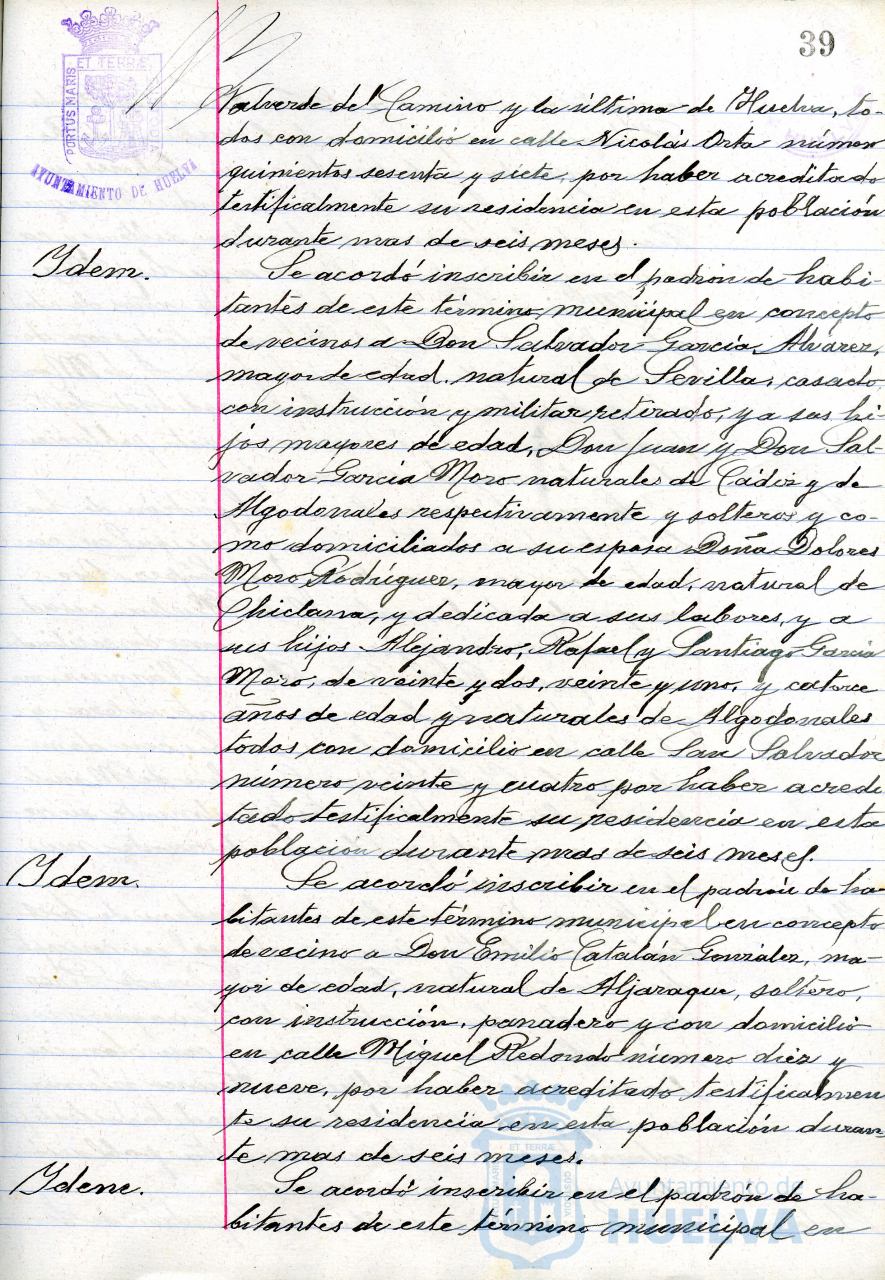 39
PORTUS MARIS ET TERRÆ CUSTODIA
AYUNTAMIENTO DE HUELVA
Valverde del Camino y la última de Huelva, to-
dos con domicilio en calle Nicolás Orta número
quinientos sesenta y siete, por haber acreditado
testificalmente su residencia en esta población
durante mas de seis meses.
Idem. Se acordó inscribir en el padrón de habi-
tantes de este término municipal en concepto
de vecinos a Don Salvador García Alvarez,
mayor de edad, natural de Sevilla, casado,
con instrucción y militar retirado, y a sus hi-
jos mayores de edad, Don Juan y Don Sal-
vador García Moro naturales de Cádiz y de
Algodonales respectivamente y solteros y co-
mo domiciliados a su esposa Doña Dolores
Moro Rodríguez, mayor de edad, natural de
Chiclana, y dedicada a sus labores, y a
sus hijos Alejandro, Rafael y Santiago García
Moro, de veinte y dos, veinte y uno, y catorce
años de edad y naturales de Algodonales
todos con domicilio en calle San Salvador
número veinte y cuatro por haber acredi
tado testificalmente su residencia en esta
población durante mas de seis meses.
Idem. Se acordó inscribir en el padrón de ha-
bitantes de este término municipal en concepto
de vecino a Don Emilio Catalán González, ma-
yor de edad, natural de Aljaraque, soltero,
con instrucción, panadero y con domicilio
en calle Miguel Redondo número diez y
nueve, por haber acreditado testificalmen
te su residencia en esta población duran-
te mas de seis meses.
Idem. Se acordó inscribir en el padrón de ha-
bitantes de este término municipal en
Ayuntamiento de
HUELVA